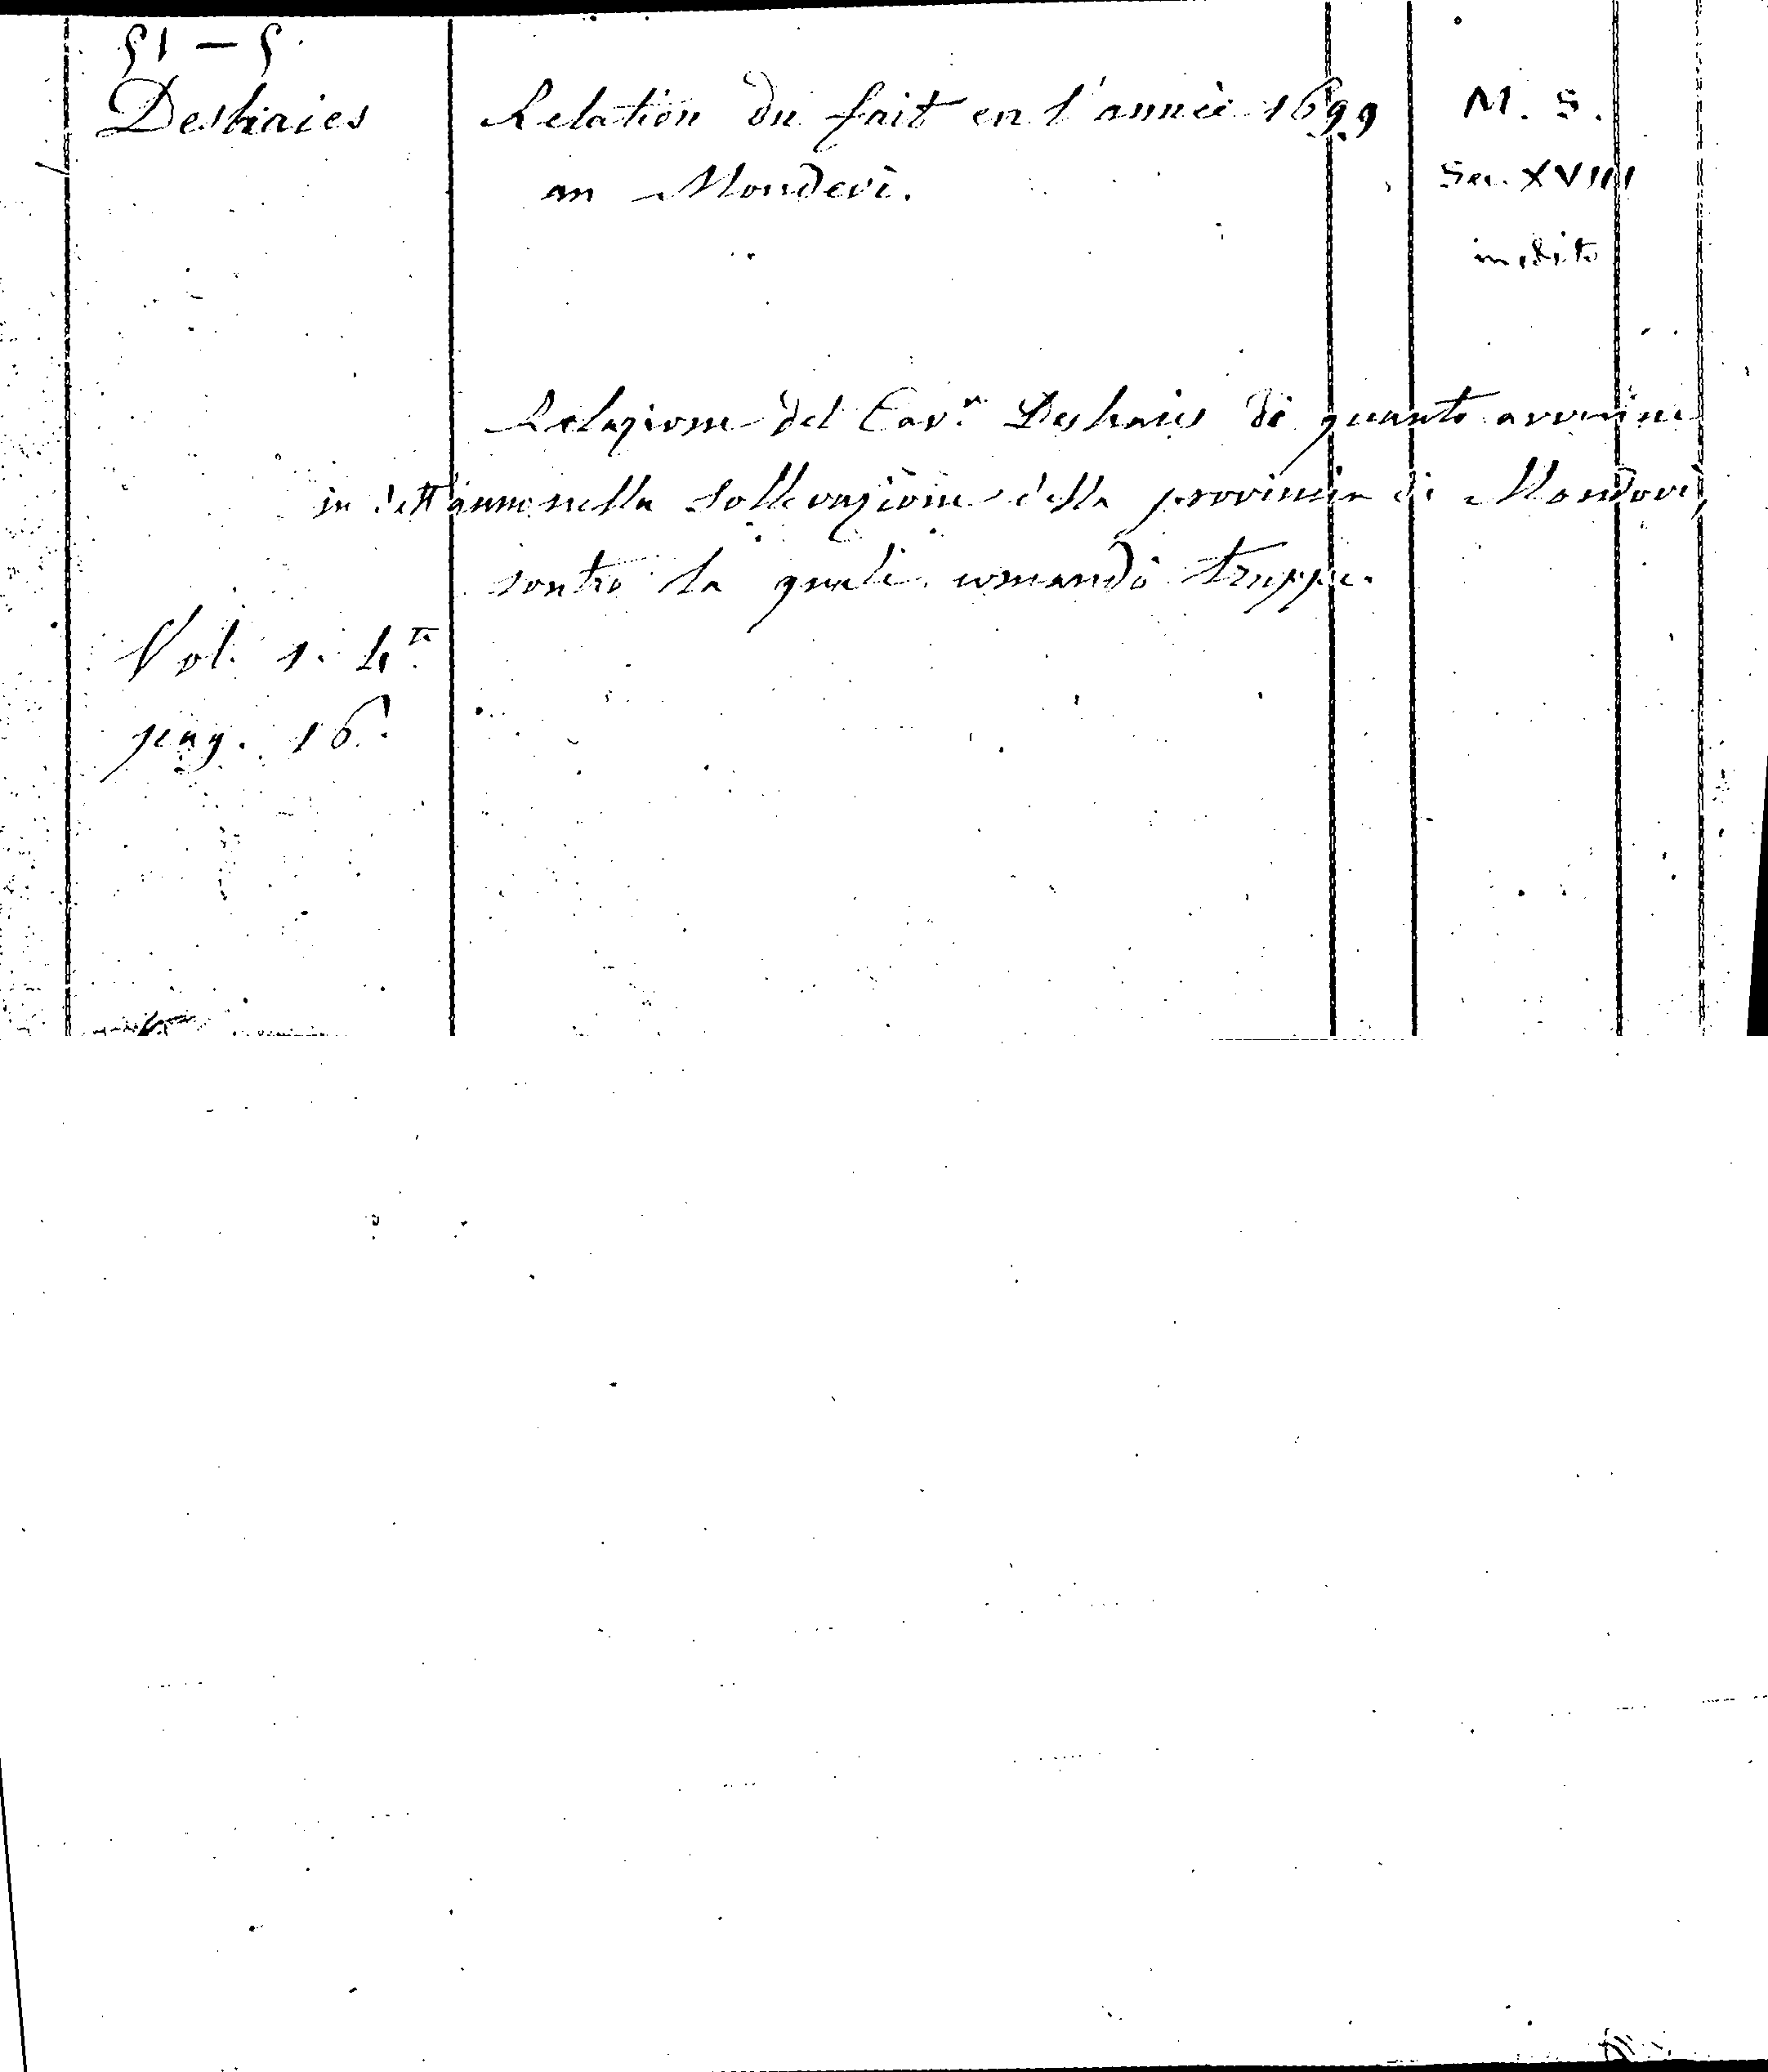 51 - 5
Deshaies
Relation du fait en l'année 1699
an Mondevi.
M. S.
Sec. XVIII
inedito
Relazione del Cav.r Deshaies di quanto avvenne
in dett'anno nella sollevazione della provincia di Mondovì,
contro la quale comandò truppe.
Vol. 1. 4to
pag. 16.